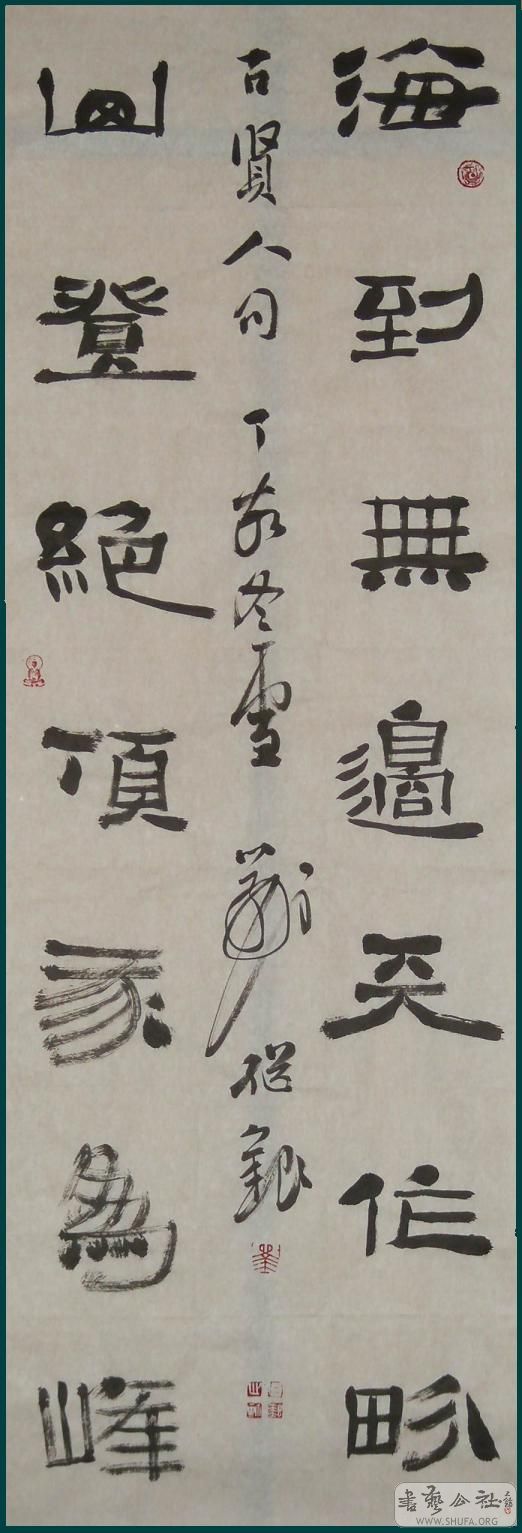 海到無邊天作畍
山登絕頂我為峰
古賢人句 丁亥冬雪 劉
書藝公社
WWW.SHUFA.ORG